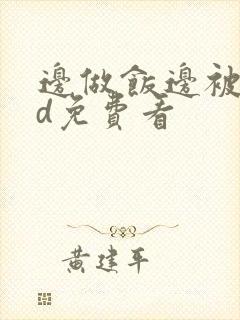 邊做飯邊被
d免費看
黃建平